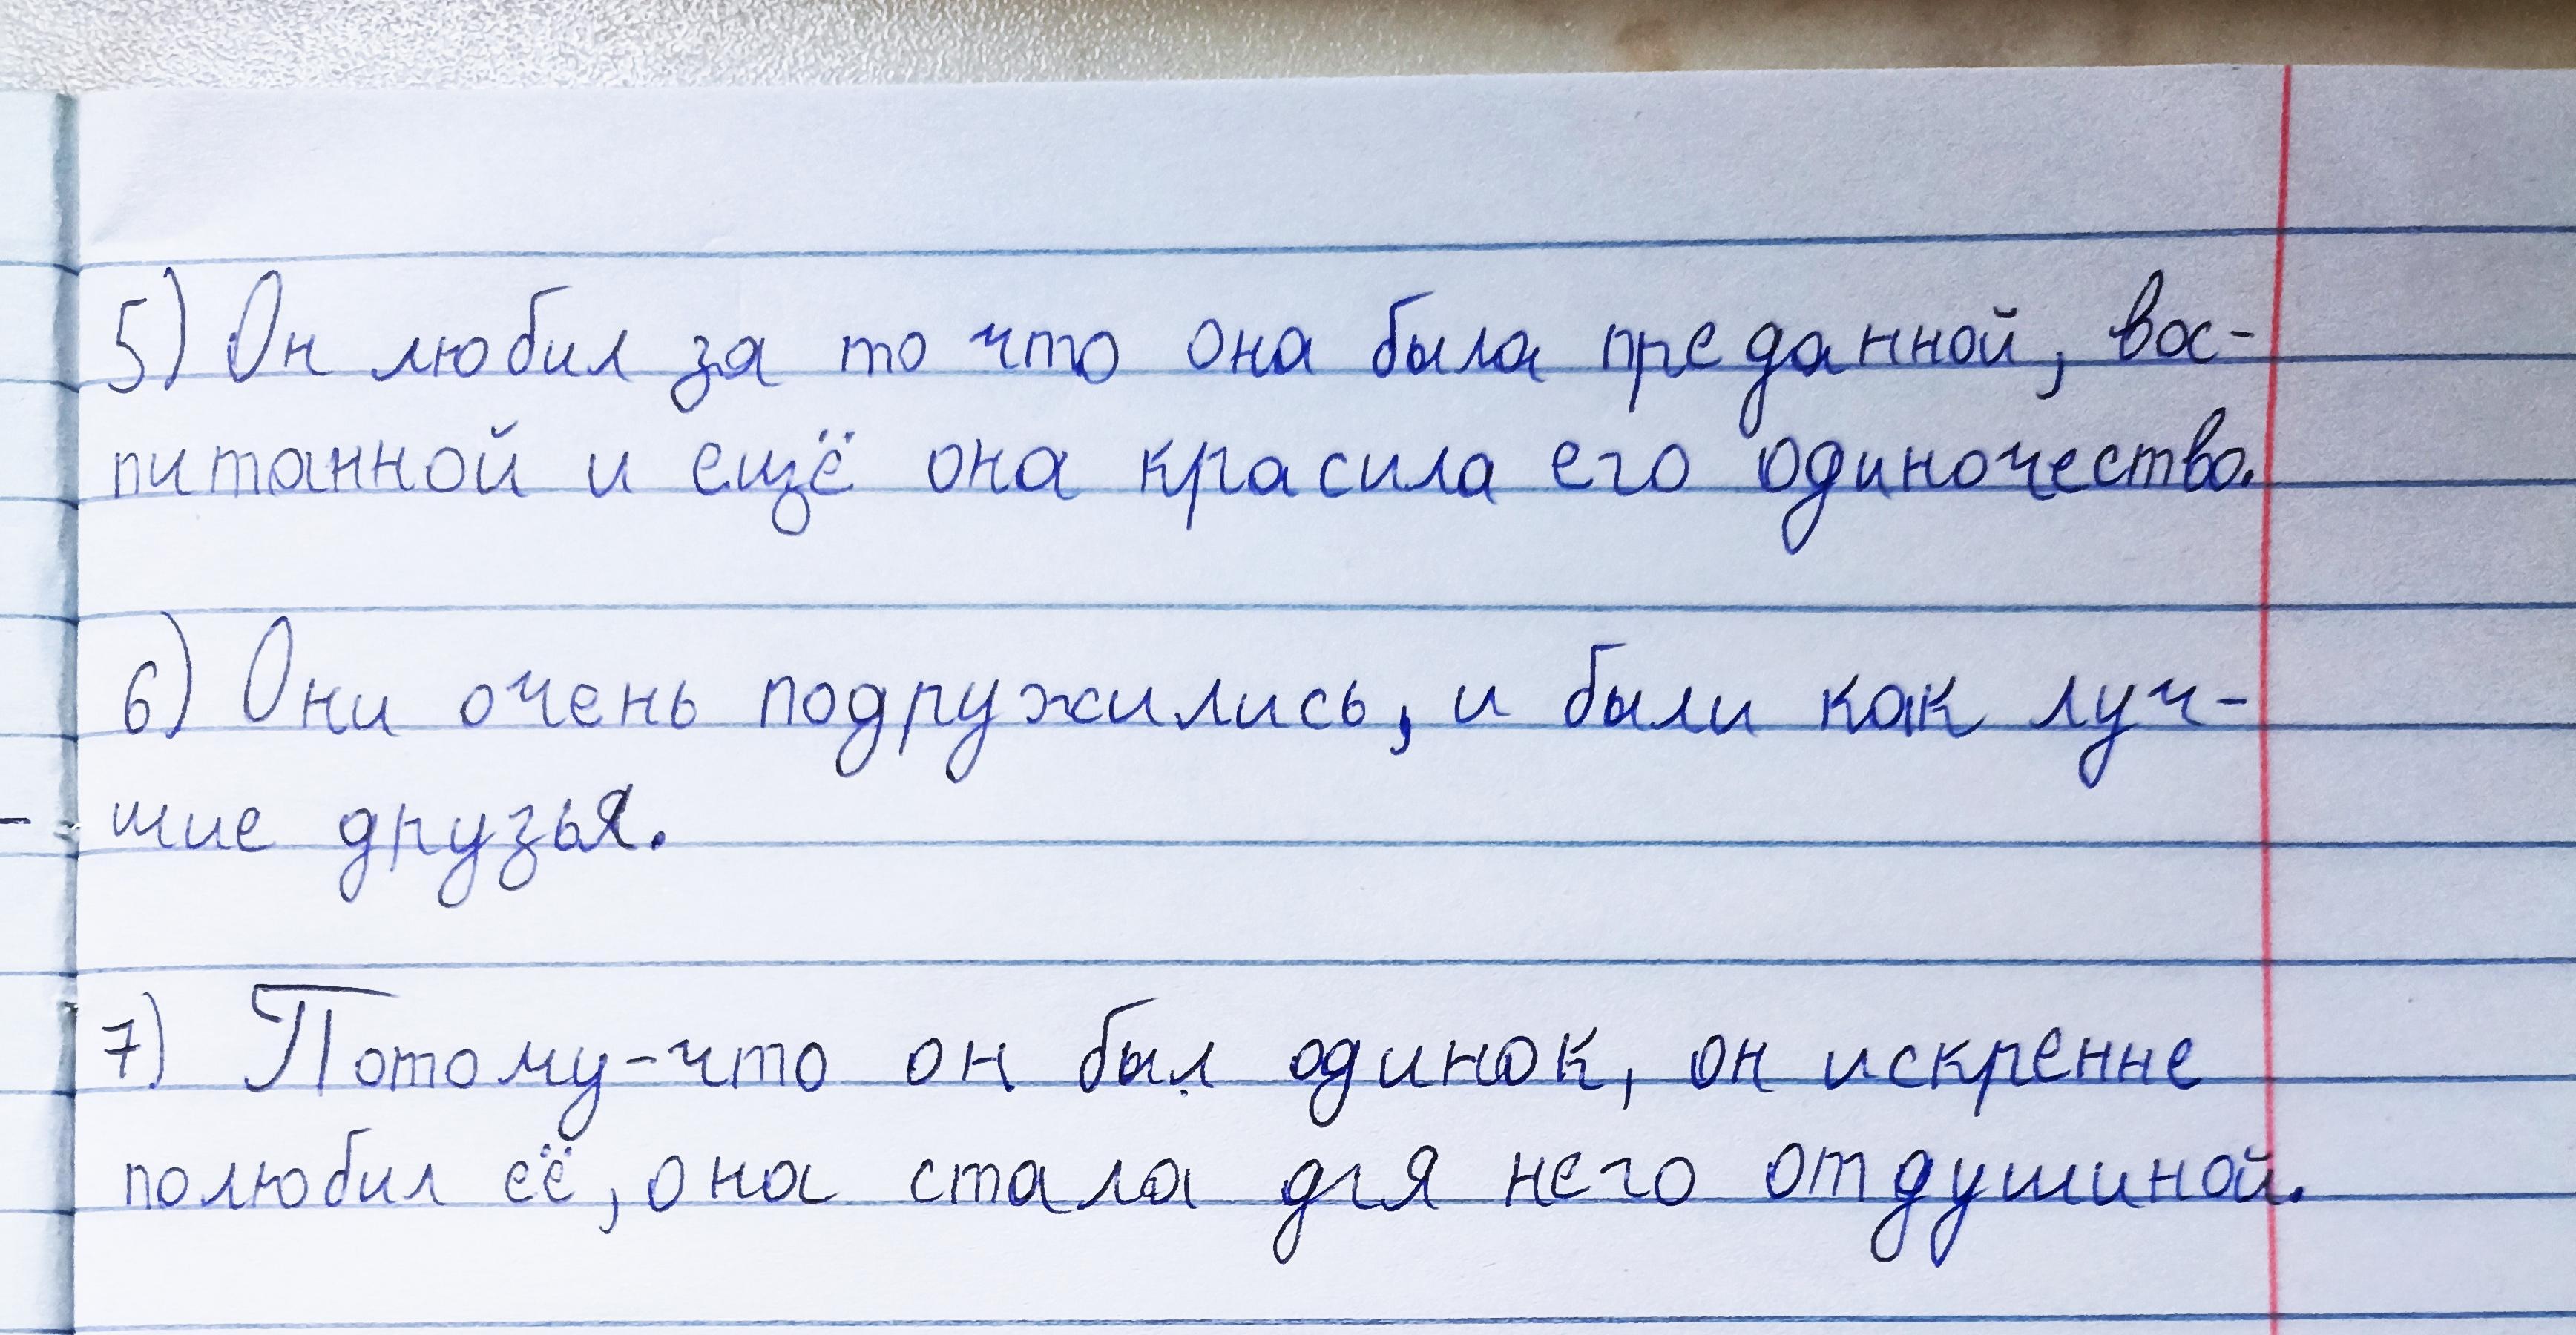 5) Он любил за то что она была преданной, вос-
питанной и ещё она красила его одиночество.
6) Они очень подружились, и были как луч-
шие друзья.
7) Потому-что он был одинок, он искренне
полюбил её, она стала для него отдушиной.